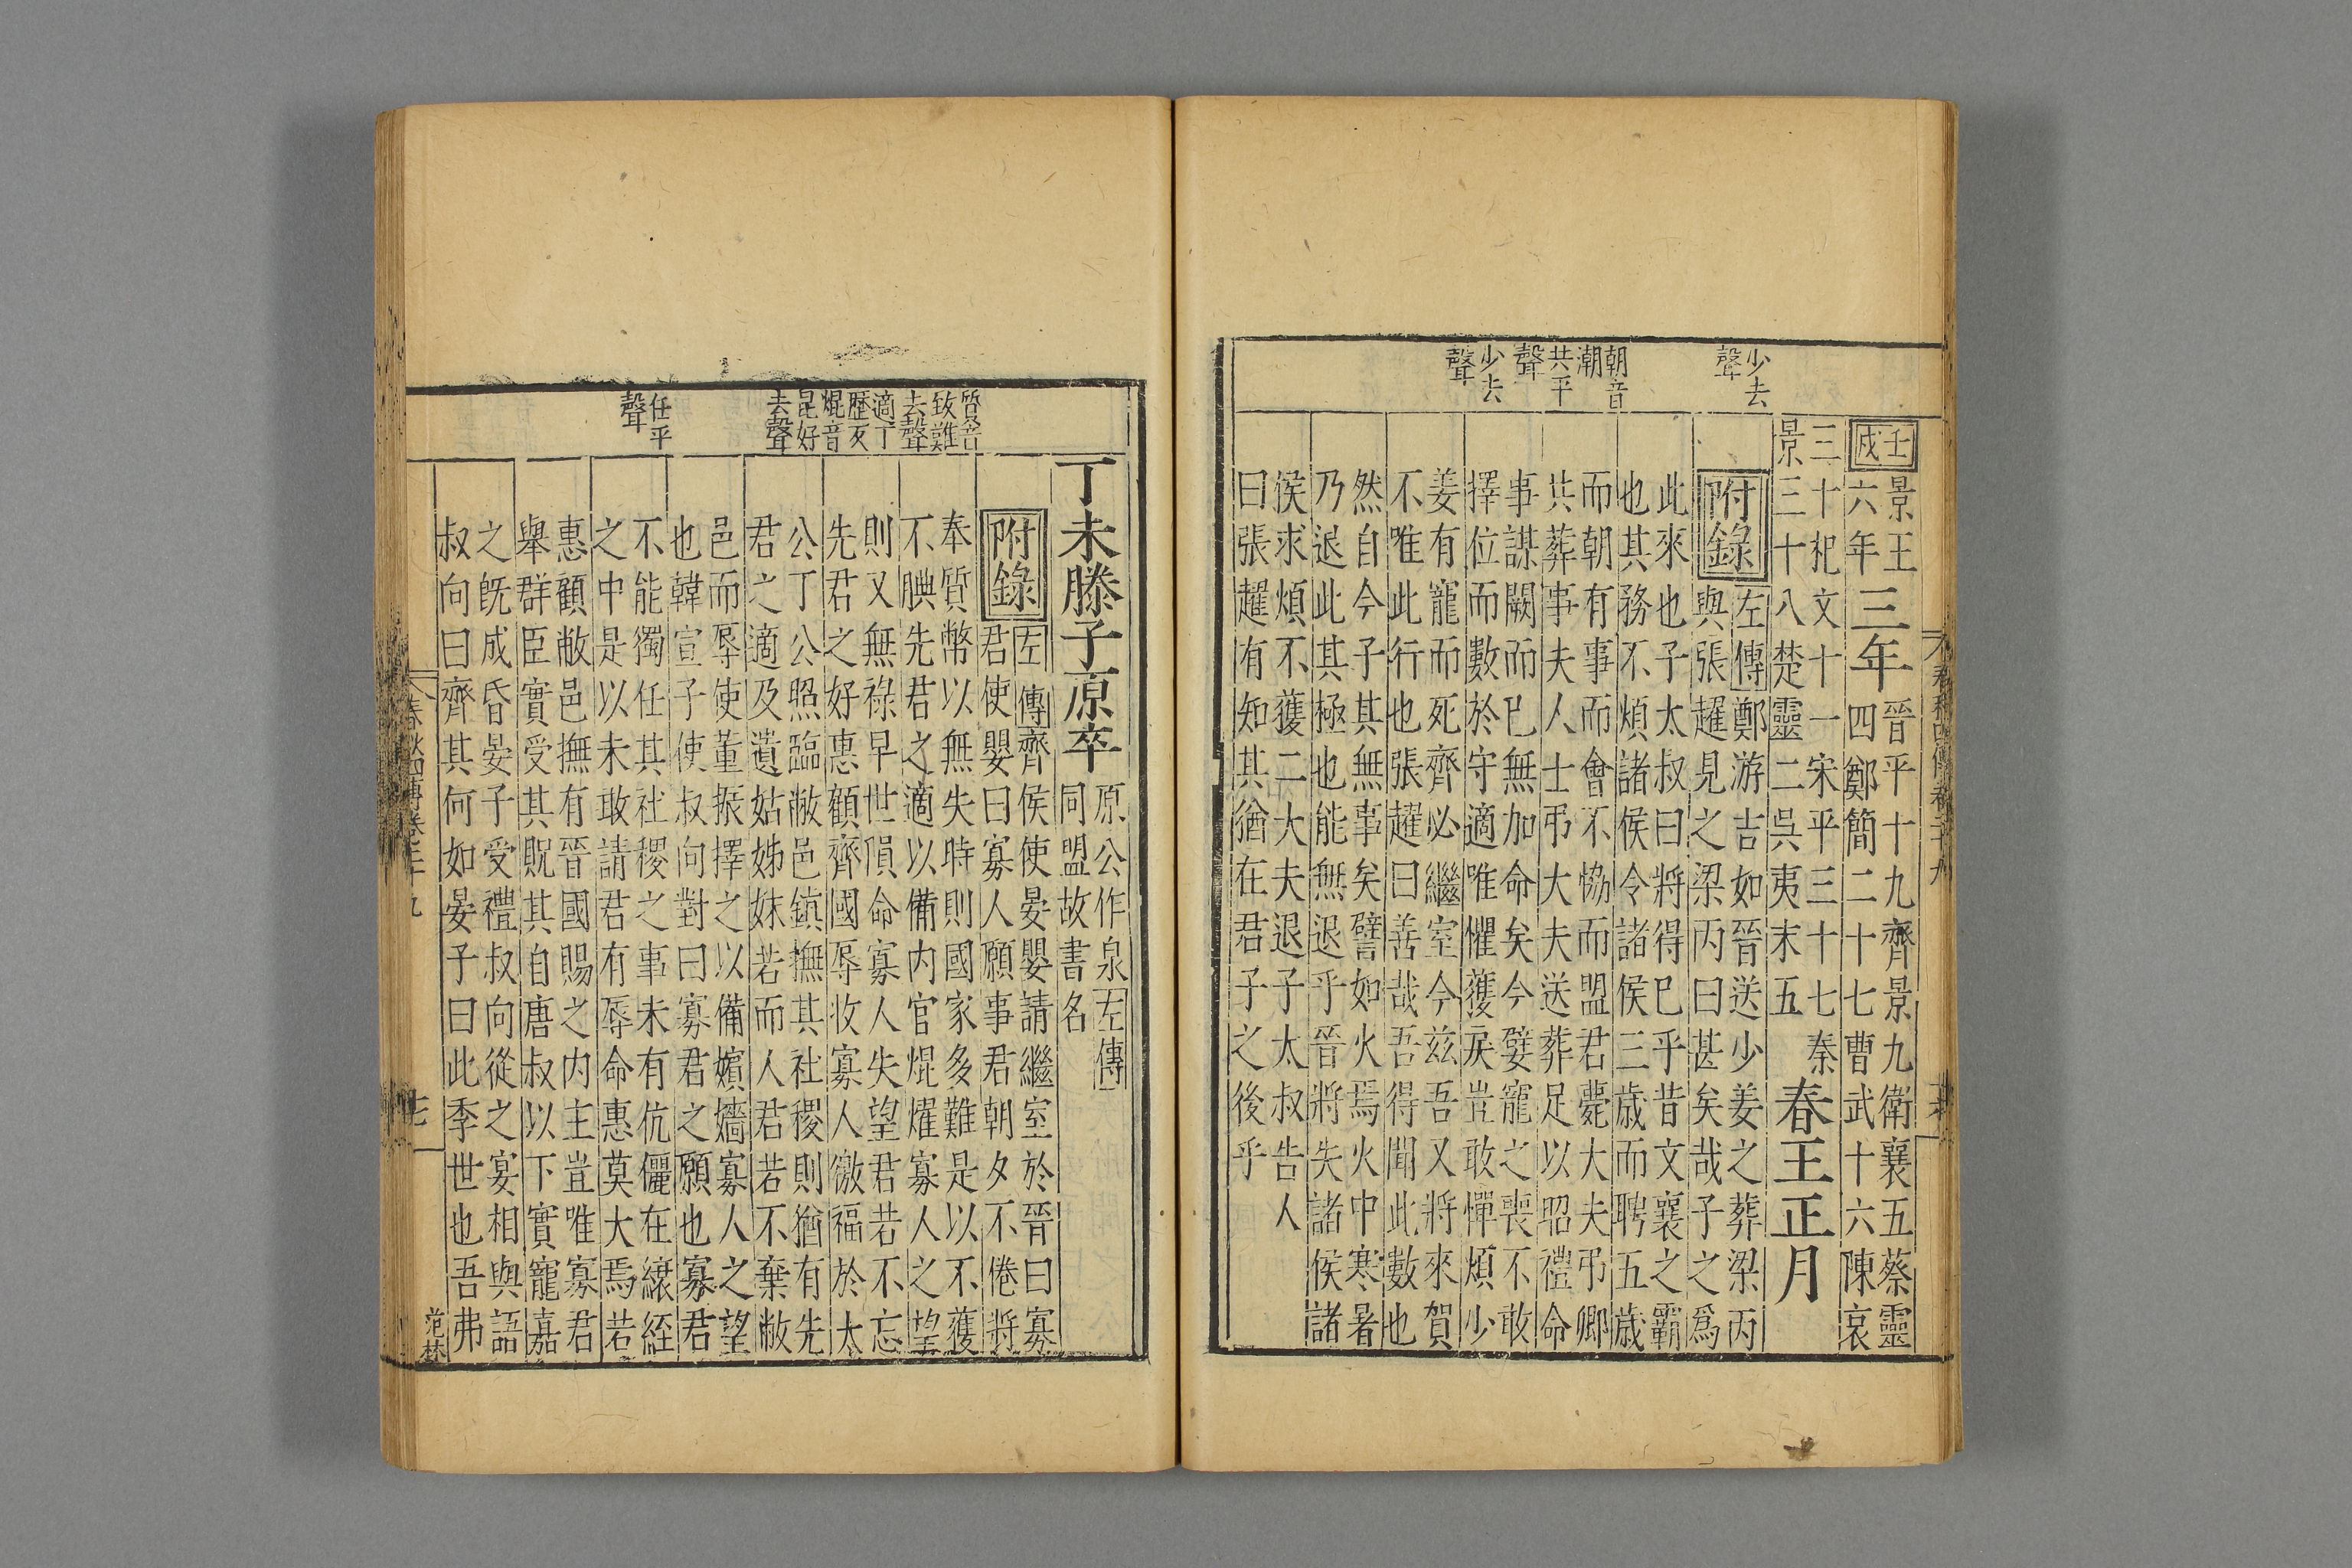 少去
聲
朝音
潮
共平
聲
少去
聲
壬戌
景王
六年
三年
晉平十九齊景九衛襄五蔡靈
四鄭簡二十七曹武十六陳哀
三十杞文十一宋平三十七秦
景三十八楚靈二吳夷末五
春王正月
附錄
左傳鄭游吉如晉送少姜之葬梁丙
與張趯見之梁丙曰甚矣哉子之爲
此來也子太叔曰將得已乎昔文襄之霸
也其務不煩諸侯令諸侯三歲而聘五歲
而朝有事而會不協而盟君薨大夫弔卿
共葬事夫人士弔大夫送葬足以昭禮命
事謀闕而已無加命矣今嬖寵之喪不敢
擇位而數於守適唯懼獲戾豈敢憚煩少
姜有寵而死齊必繼室今茲吾又將來賀
不唯此行也張趯曰善哉吾得聞此數也
然自今子其無事矣譬如火焉火中寒暑
乃退此其極也能無退乎晉將失諸侯諸
侯求煩不獲二大夫退子太叔告人
曰張趯有知其猶在君子之後乎
質音
致難
去聲
適丁
歷反
焜音
昆好
去聲
任平
聲
丁未滕子原卒
原公作泉左傳
同盟故書名
附錄
左傳齊侯使晏嬰請繼室於晉曰寡
君使嬰曰寡人願事君朝夕不倦將
奉質幣以無失時則國家多難是以不獲
不腆先君之適以備內官焜燿寡人之望
則又無祿早世隕命寡人失望君若不忘
先君之好惠顧齊國辱收寡人徼福於太
公丁公照臨敝邑鎮撫其社稷則猶有先
君之適及遺姑姊妹若而人君若不棄敝
邑而辱使董振擇之以備嬪嬙寡人之望
也韓宣子使叔向對曰寡君之願也寡君
不能獨任其社稷之事未有伉儷在縗絰
之中是以未敢請君有辱命惠莫大焉若
惠顧敝邑撫有晉國賜之內主豈唯寡君
舉群臣實受其貺其自唐叔以下實寵嘉
之旣成昏晏子受禮叔向從之宴相與語
叔向曰齊其何如晏子曰此季世也吾弗
春秋四傳卷二十九